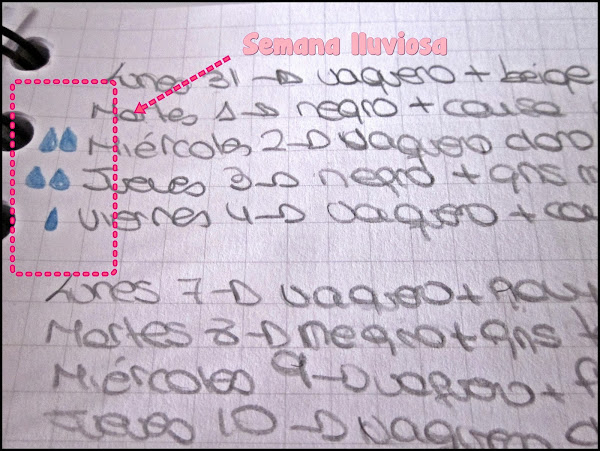 Semana lluviosa
Lunes 31 → vaquero + beige
Martes 1 → negro +
Miércoles 2 → vaquero
Jueves 3 → negro + gris
Viernes 4 → vaquero +
Lunes 7 → vaquero +
Martes 8 → negro + gris
Miércoles 9 → vaquero +
Jueves 10 → vaquero